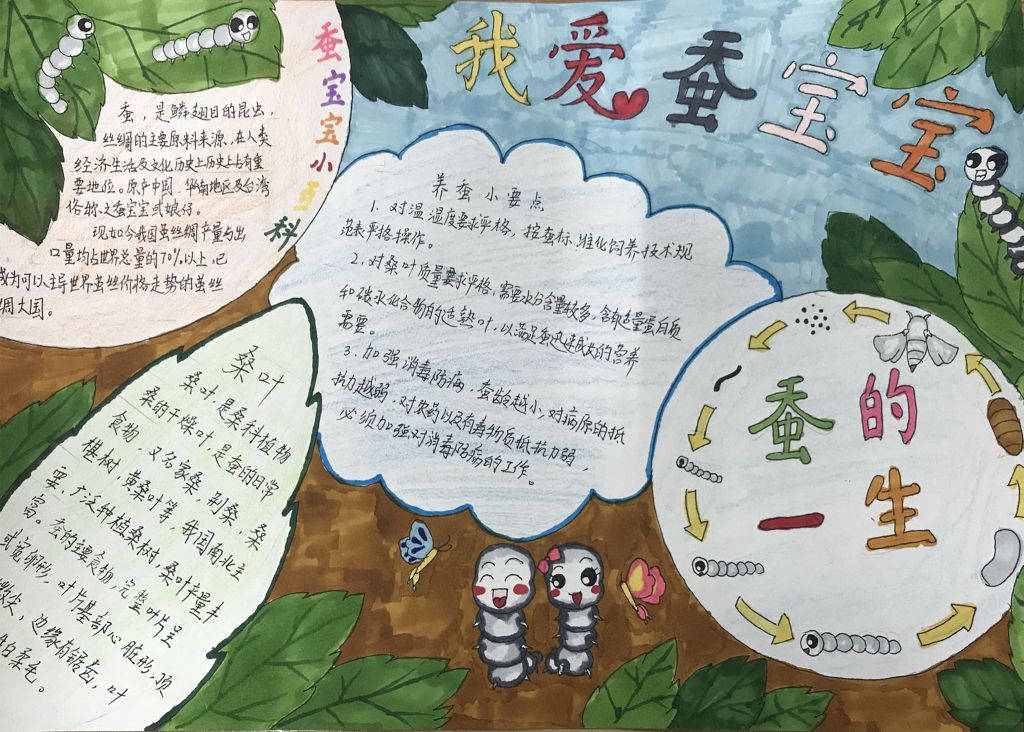 我爱蚕宝宝
蚕宝宝小百科
蚕，是鳞翅目的昆虫，
丝绸的主要原料来源，在人类
经济生活及文化历史上历史上占有重
要地位。原产中国，华南地区及台湾
俗称之蚕宝宝或娘仔。
现如今我国蚕丝绸产量与出
口量均占世界总量的70%以上，已
成为可以主导世界蚕丝价格走势的蚕丝
绸大国。
养蚕小要点
1．对温湿度要求严格，按蚕标准化饲养技术规
范来严格操作。
2．对桑叶质量要求严格，需要水分含量较多，含有适量蛋白质
和碳水化合物的适熟叶，以满足蚕迅速成长的营养
需要。
3．加强消毒防病，蚕龄越小，对病原的抵
抗力越弱，对农药以及有毒物质抵抗力弱，
必须加强对消毒防病的工作。
桑叶
桑叶，是桑科植物
桑的干燥叶，是蚕的日常
食物，又名家桑，荆桑，桑
椹树，黄桑叶等，我国南北立
要，广泛种植桑树，桑叶产量丰
富。蚕的主要食物，完整叶片呈
或宽卵形，叶片基部心脏形，顶
微尖，边缘有锯齿，叶
柔毛。
蚕的
一生